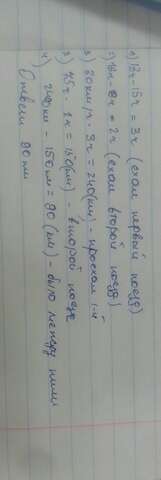 1) 18ч - 15ч = 3ч (ехал первый поезд)
2) 18ч - 16ч = 2ч (ехал второй поезд)
3) 80км/ч · 3ч = 240(км) - проехал 1-й
3) 75ч · 2ч = 150(км) - второй поезд
4) 240км - 150км = 90(км) - было между ними
Ответ: 90км